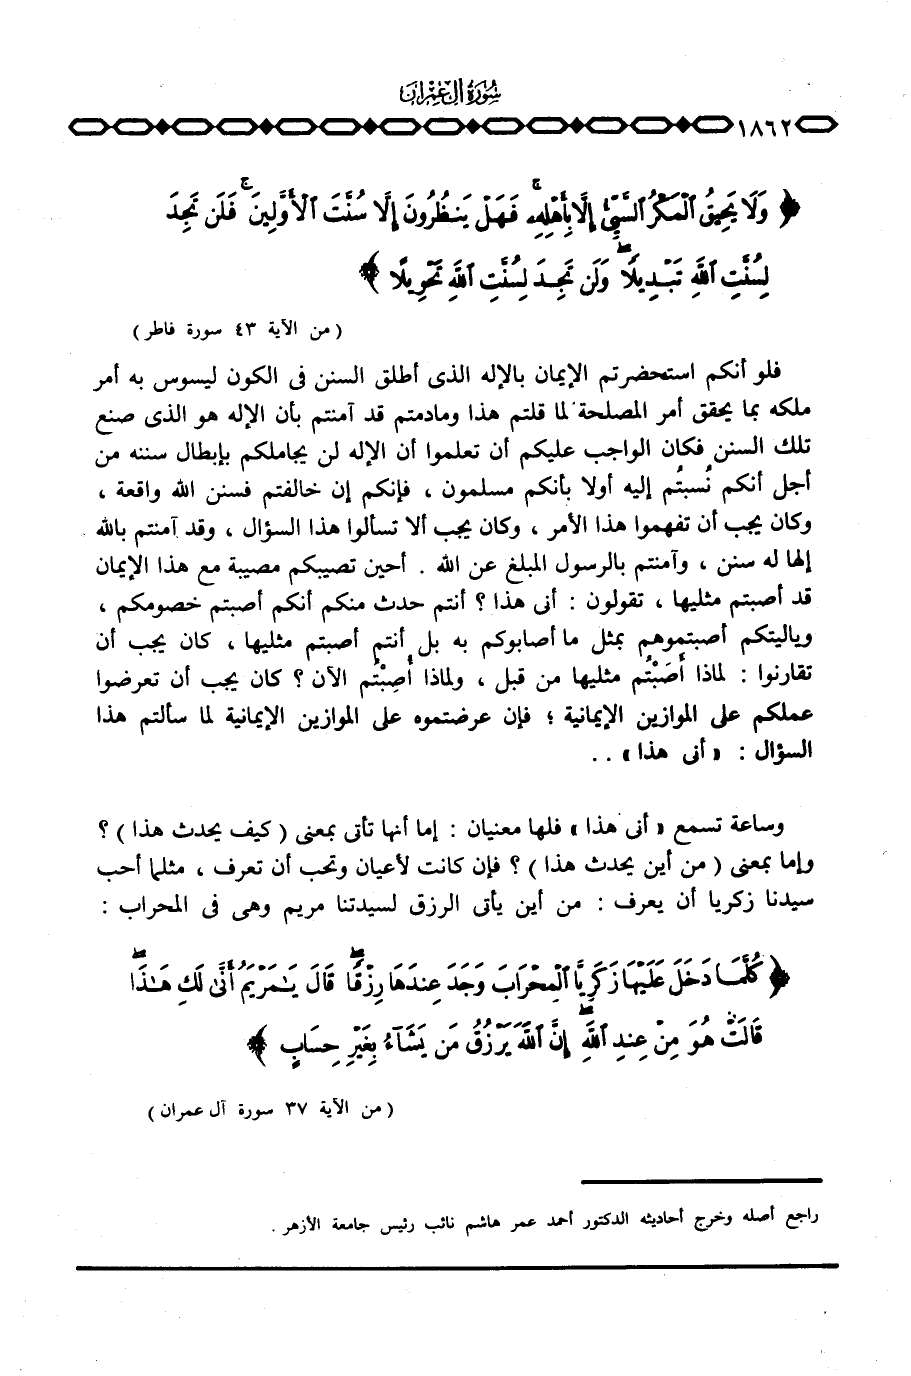 سُورَةُ آلِ عِمْرَان
١٨٦٢
﴿ وَلَا يَحِيقُ ٱلْمَكْرُ ٱلسَّيِّئُ إِلَّا بِأَهْلِهِۦ ۚ فَهَلْ يَنظُرُونَ إِلَّا سُنَّتَ ٱلْأَوَّلِينَ ۚ فَلَن تَجِدَ
لِسُنَّتِ ٱللَّهِ تَبْدِيلًا ۖ وَلَن تَجِدَ لِسُنَّتِ ٱللَّهِ تَحْوِيلًا ﴾
( من الآية ٤٣ سورة فاطر )
فلو أنكم استحضرتم الإيمان بالإله الذى أطلق السنن فى الكون ليسوس به أمر
ملكه بما يحقق أمر المصلحة لما قلتم هذا ومادمتم قد آمنتم بأن الإله هو الذى صنع
تلك السنن فكان الواجب عليكم أن تعلموا أن الإله لن يجاملكم بإبطال سننه من
أجل أنكم نُسبتُم إليه أولا بأنكم مسلمون ، فإنكم إن خالفتم فسنن الله واقعة ،
وكان يجب أن تفهموا هذا الأمر ، وكان يجب ألا تسألوا هذا السؤال ، وقد آمنتم بالله
إلها له سنن ، وآمنتم بالرسول المبلغ عن الله . أحين تصيبكم مصيبة مع هذا الإيمان
قد أصبتم مثليها ، تقولون : أنى هذا ؟ أنتم حدث منكم أنكم أصبتم خصومكم ،
وياليتكم أصبتموهم بمثل ما أصابوكم به بل أنتم أصبتم مثليها ، كان يجب أن
تقارنوا : لماذا أَصَبْتُم مثليها من قبل ، ولماذا أُصِبْتُم الآن ؟ كان يجب أن تعرضوا
عملكم على الموازين الإيمانية ؛ فإن عرضتموه على الموازين الإيمانية لما سألتم هذا
السؤال : « أنى هذا » . .
وساعة تسمع « أنى هذا » فلها معنيان : إما أنها تأتى بمعنى ( كيف يحدث هذا ) ؟
وإما بمعنى ( من أين يحدث هذا ) ؟ فإن كانت لأعيان وتحب أن تعرف ، مثلما أحب
سيدنا زكريا أن يعرف : من أين يأتى الرزق لسيدتنا مريم وهى فى المحراب :
﴿ كُلَّمَا دَخَلَ عَلَيْهَا زَكَرِيَّا ٱلْمِحْرَابَ وَجَدَ عِندَهَا رِزْقًا ۖ قَالَ يَٰمَرْيَمُ أَنَّىٰ لَكِ هَٰذَا ۖ
قَالَتْ هُوَ مِنْ عِندِ ٱللَّهِ ۖ إِنَّ ٱللَّهَ يَرْزُقُ مَن يَشَآءُ بِغَيْرِ حِسَابٍ ﴾
( من الآية ٣٧ سورة آل عمران )
راجع أصله وخرج أحاديثه الدكتور أحمد عمر هاشم نائب رئيس جامعة الأزهر .